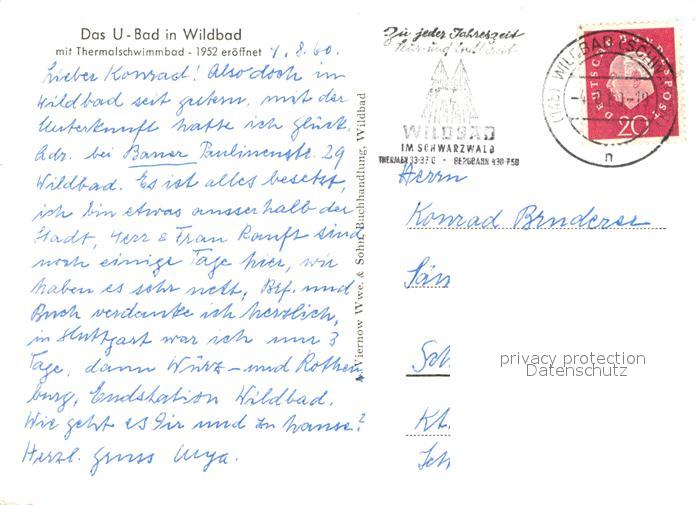 Das U-Bad in Wildbad
mit Thermalschwimmbad - 1952 eröffnet
4.8.60.
Lieber Konrad! Also doch in
Wildbad seit gestern, mit der
Unterkunft hatte ich Glück.
Adr. bei Bauer Paulinenstr. 29
Wildbad. Es ist alles besetzt,
ich bin etwas ausserhalb der
Stadt, Herr & Frau Ranft sind
noch einige Tage hier, wir
haben es sehr nett, Bf. und
Buch verdanke ich herzlich,
in Stuttgart war ich nur 3
Tage, dann Würz- und Rothen
burg, Endstation Wildbad.
Wie geht es Dir und zu hause?
Herzl. Gruss
A. Viernow Wwe. & Sohn, Buchhandlung, Wildbad
Zu jeder Jahreszeit
Kur- und
WILDBAD
IM SCHWARZWALD
THERMEN 33-37°C • BERGBAHN 430-750
DEUTSCHE BUNDESPOST
20
WILDBAD (SCHW
n
Herrn
Konrad
Sch
Kt.
privacy protection
Datenschutz